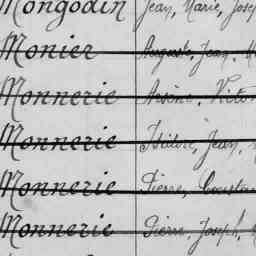 Mongodin Jean, Marie, Josep
Monier Auguste, Jean, M
Monnerie Arsène, Victor
Monnerie Isidore, Jean,
Monnerie Pierre, Constan
Monnerie Pierre, Joseph,